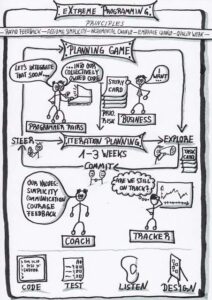 EXTREME PROGRAMMING.
PRINCIPLES
RAPID FEEDBACK — ASSUME SIMPLICITY — INCREMENTAL CHANGE — EMBRACE CHANGE — QUALITY WORK
PLANNING GAME
LET'S INTEGRATE
THAT SOON...
...INTO OUR
COLLECTIVELY
OWNED CODE
STORY
CARD
I
WANT...
PRIO.
RISK
PROGRAMMER PAIRS
BUSINESS
STEER
ITERATION PLANNING
EXPLORE
1-3 WEEKS
COMMIT
TASK
CARD
OUR VALUES:
SIMPLICITY
COMMUNICATION
COURAGE
FEEDBACK
ARE WE STILL
ON TRACK?
COACH
TRACKER
CODE
TEST
LISTEN
DESIGN